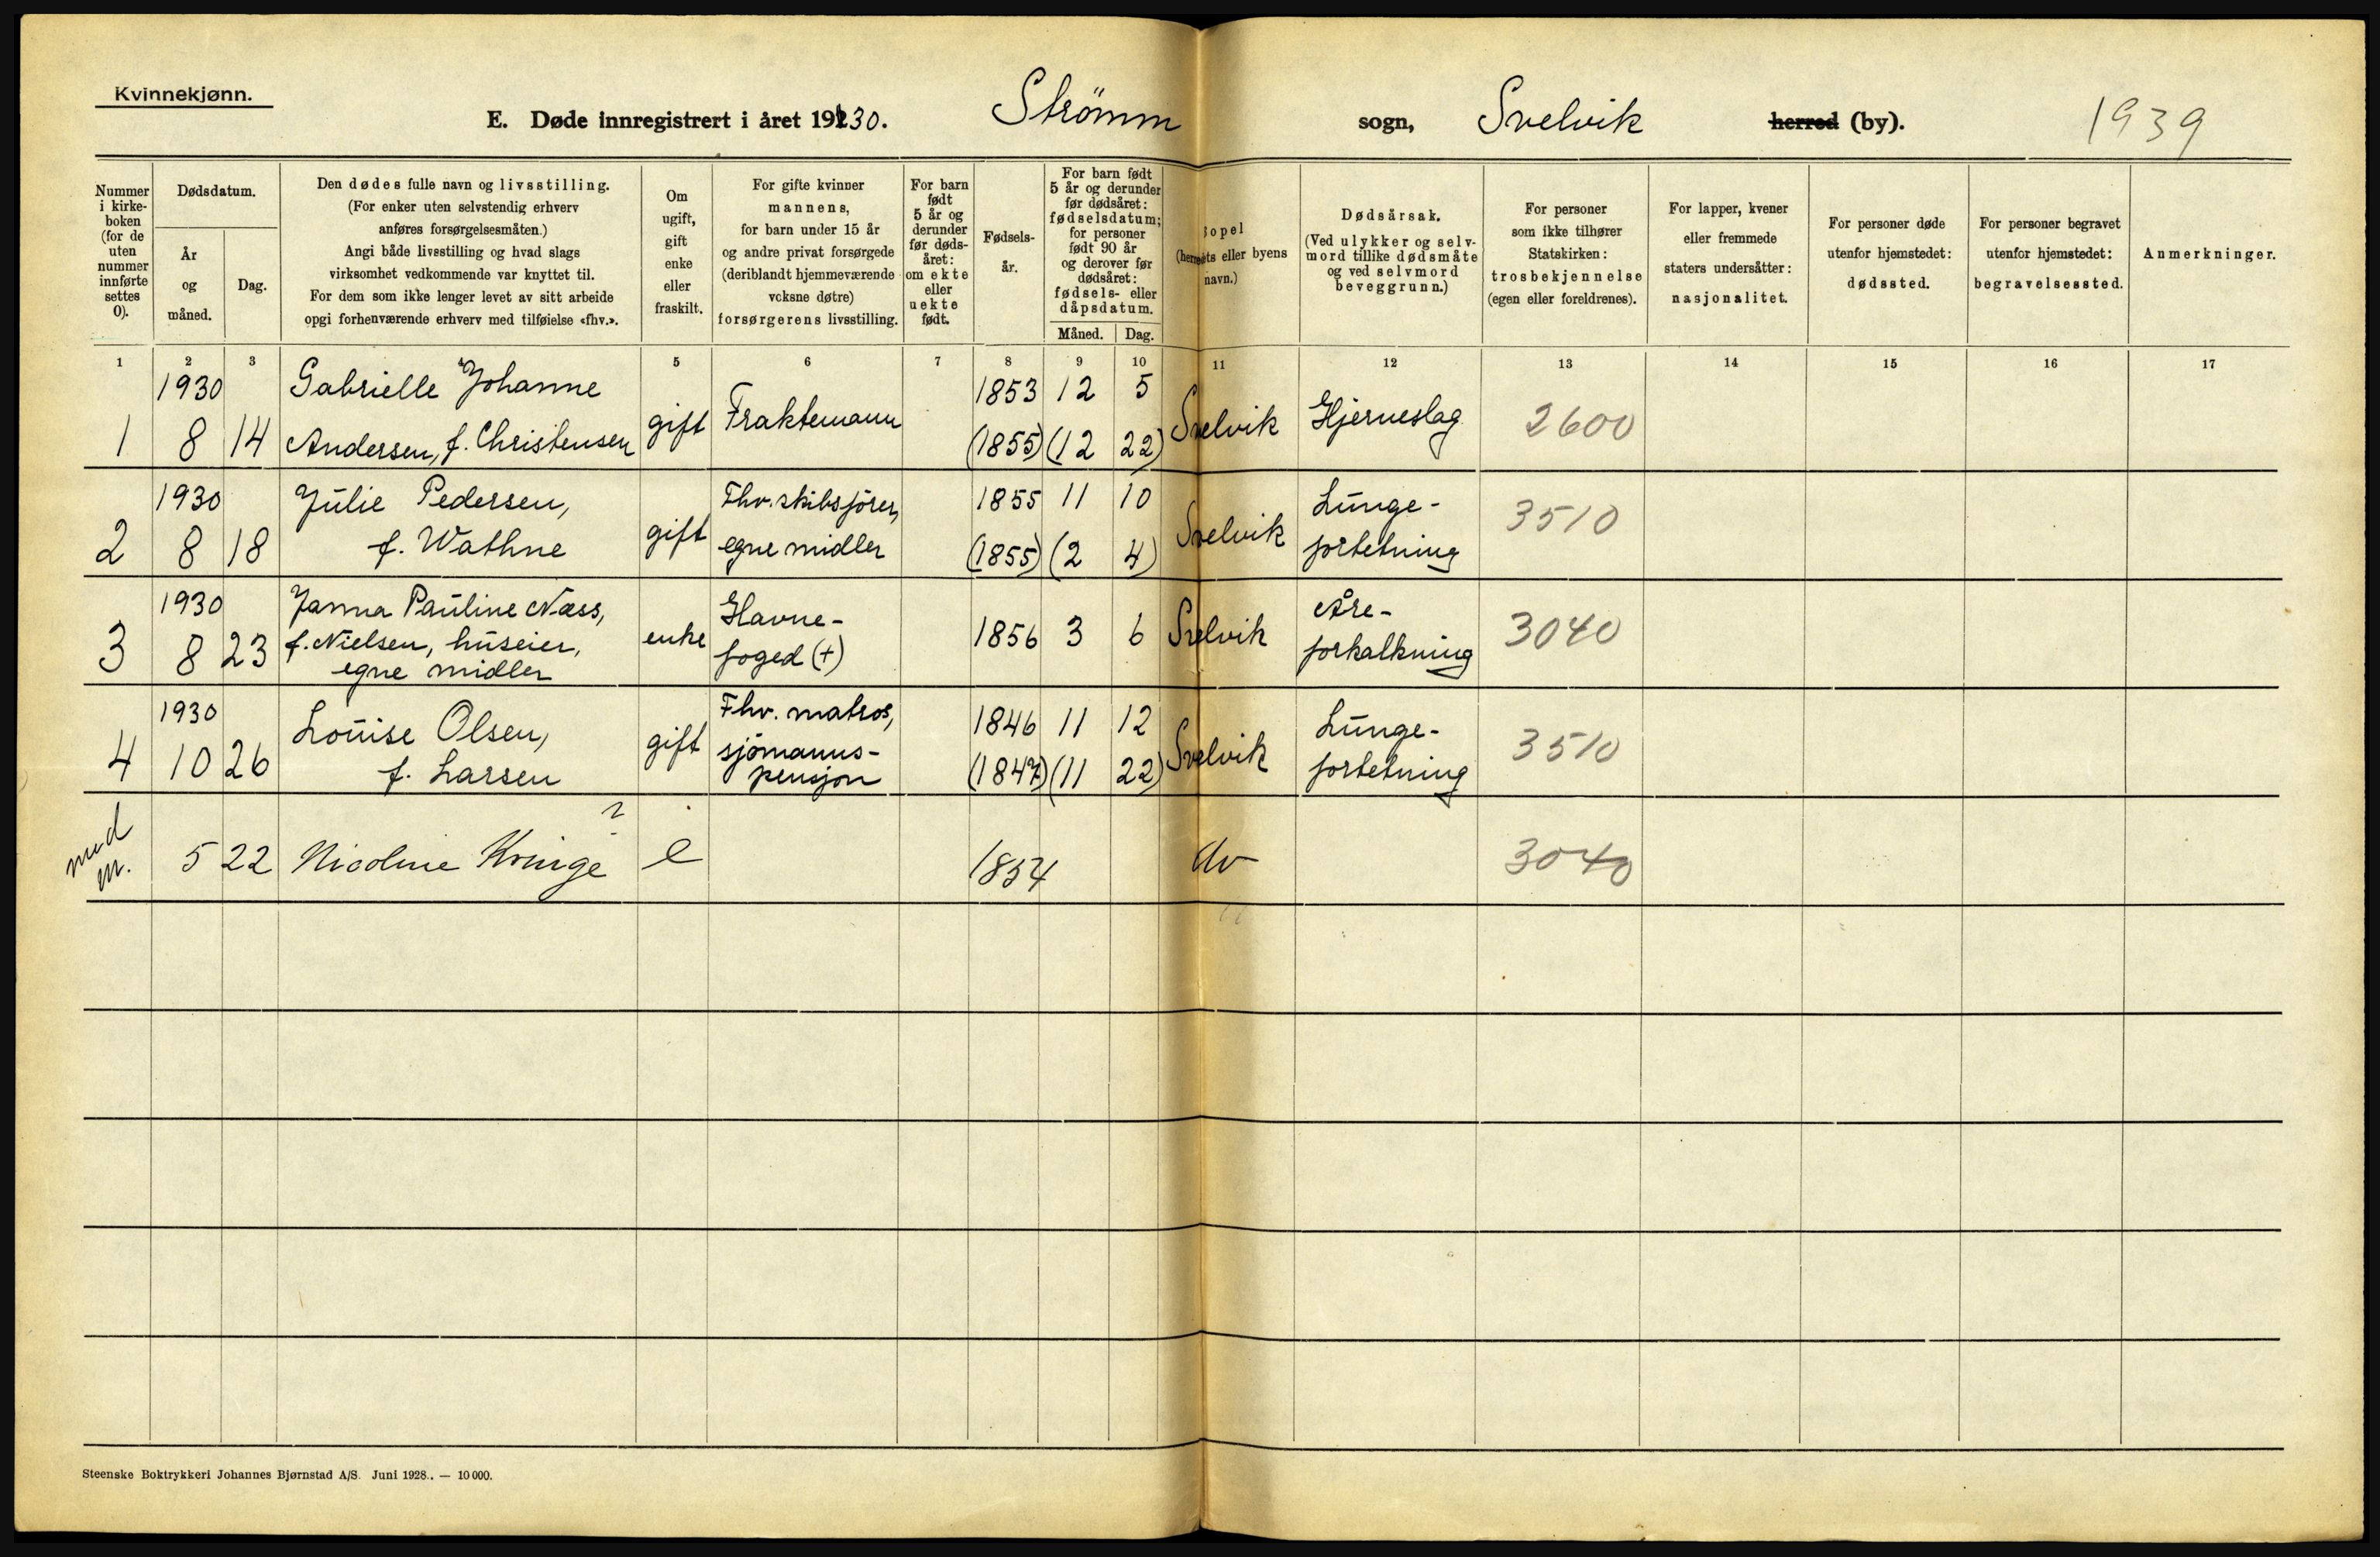 Kvinnekjønn.
E. Døde innregistrert i året 1930. Strömm sogn, Svelvik herred (by). 1939
Nummer i kirke- boken (for de uten nummer innførte settes 0).
Dødsdatum.
År og måned.
Dag.
Den dødes fulle navn og livsstilling.
(For enker uten selvstendig erhverv
anføres forsørgelsesmåten.)
Angi både livsstilling og hvad slags
virksomhet vedkommende var knyttet til.
For dem som ikke lenger levet av sitt arbeide
opgi forhenværende erhverv med tilføielse «fhv.».
Om
ugift,
gift
enke
eller
fraskilt.
For gifte kvinner
mannens,
for barn under 15 år
og andre privat forsørgede
(deriblandt hjemmeværende
voksne døtre)
forsørgerens livsstilling.
For barn
født
5 år og
derunder
før døds-
året:
om ekte
eller
uekte
født.
Fødsels-
år.
For barn født
5 år og derunder
før dødsåret:
fødselsdatum;
for personer
født 90 år
og derover før
dødsåret:
fødsels- eller
dåpsdatum.
Måned. Dag.
Bopel
(herredets eller byens
navn.)
Dødsårsak.
(Ved ulykker og selv-
mord tillike dødsmåte
og ved selvmord
beveggrunn.)
For personer
som ikke tilhører
Statskirken:
trosbekjennelse
(egen eller foreldrenes).
For lapper, kvener
eller fremmede
staters undersåtter:
nasjonalitet.
For personer døde
utenfor hjemstedet:
dødssted.
For personer begravet
utenfor hjemstedet:
begravelsessted.
Anmerkninger.
1 2 3 4 5 6 7 8 9 10 11 12 13 14 15 16 17
1930 Gabrielle Johanne 1853 12 5
1 8 14 Andersen, f. Christensen gift Fraktemann (1855) (12 22) Svelvik Hjerneslag 2600
1930 Julie Pedersen, Fhv. skibsförer, 1855 11 10 Lunge-
2 8 18 f. Wathne gift egne midler (1855) (2 4) Svelvik fortetning 3510
1930 Janna Pauline Næss, Havne- Åre-
3 8 23 f. Nielsen, huseier, enke foged (+) 1856 3 6 Svelvik forkalkning 3040
egne midler
1930 Louise Olsen, Fhv. matros, 1846 11 12 Lunge-
4 10 26 f. Larsen gift sjömanns- (1847) (11 22) Svelvik fortetning 3510
pensjon
med
m. 5 22 Nicoline ? e 1854 3040
Steenske Boktrykkeri Johannes Bjørnstad A/S. Juni 1928.. — 10 000.